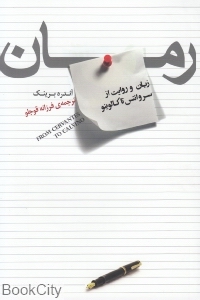 رمان
زبان و روایت از
سروانتس تا کالوینو
آندره برینک
ترجمه‌ی فرزانه قوجلو
FROM CERVANTES
TO CALVINO
BookCity